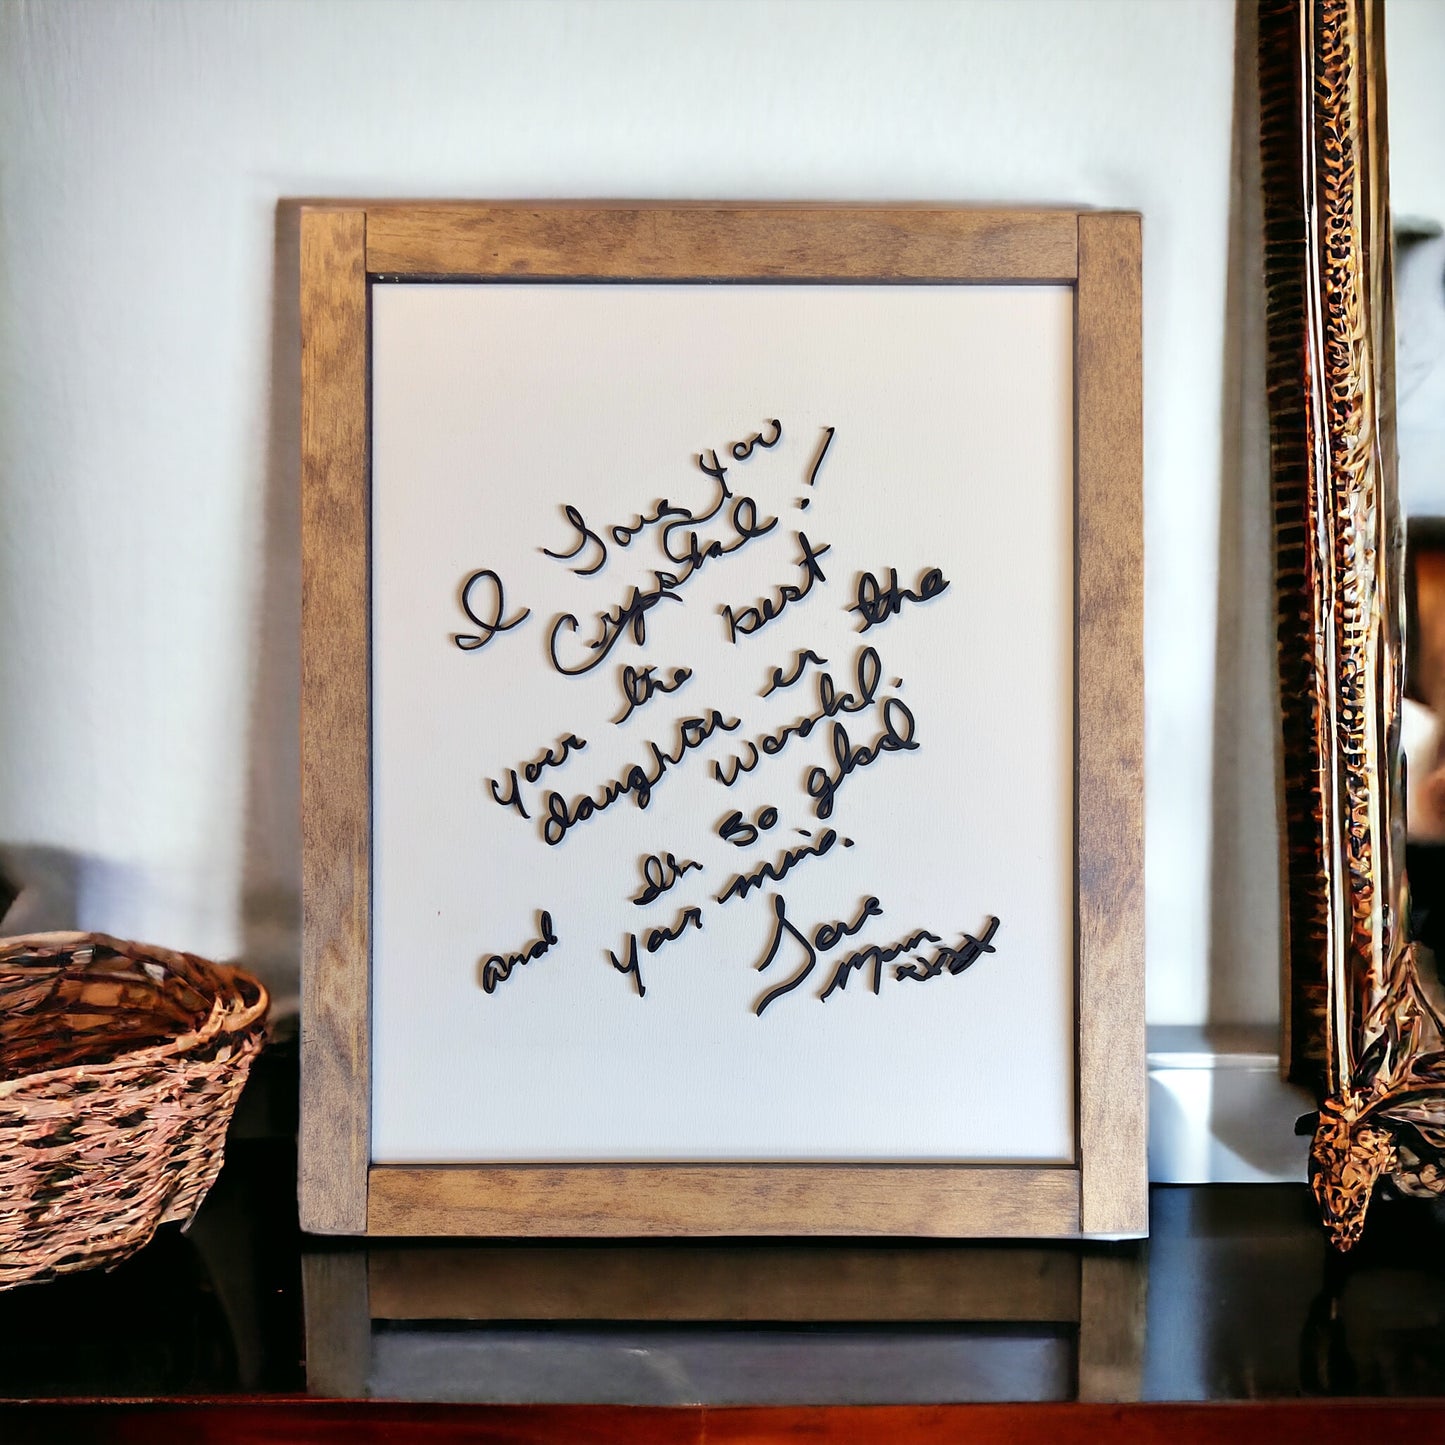 I Love You
Crystal!
Your the best
daughter in the
world.
and Im so glad
your mine.
Love
Mum xxxx